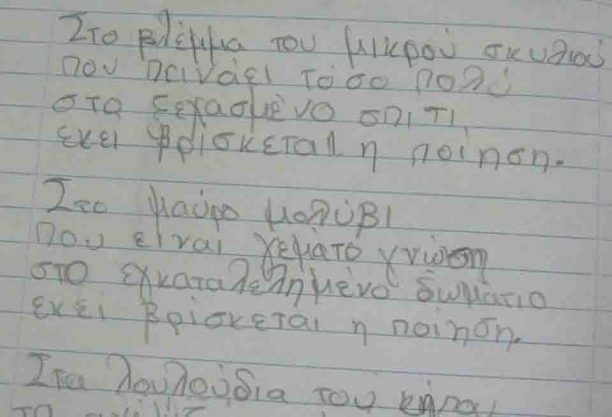 Στο βλέμμα του μικρού σκυλιού
που πεινάει τόσο πολύ
στο ξεχασμένο σπίτι
εκεί βρίσκεται η ποίηση.
Στο μαύρο μολύβι
που είναι γεμάτο γνώση
στο εγκαταλελημένο δωμάτιο
εκεί βρίσκεται η ποίηση.
Στα λουλούδια του κήπου